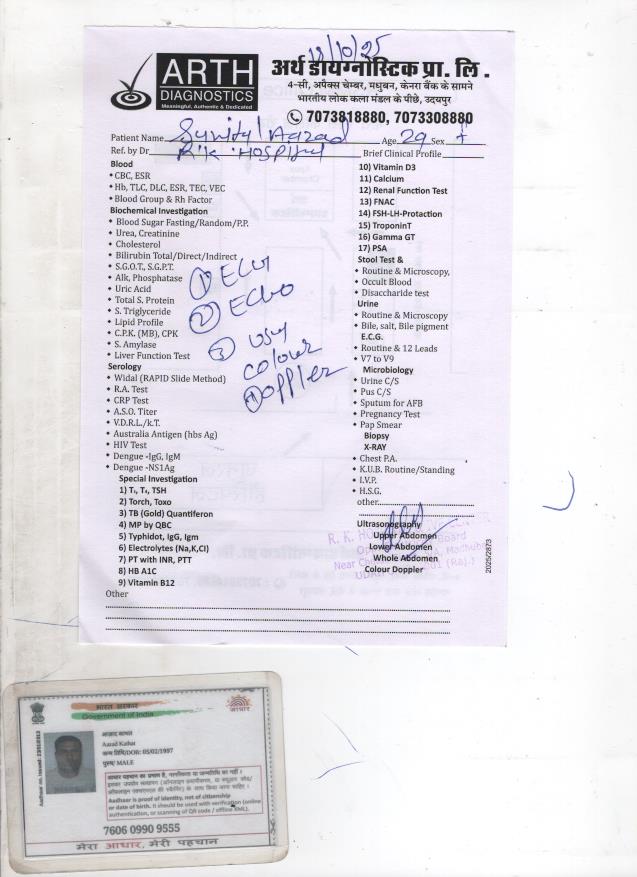 18/10/25
ARTH
DIAGNOSTICS
Meaningful, Authentic & Dedicated
अर्थ डायग्नोस्टिक प्रा. लि .
4-सी, अपैक्स चेम्बर, मधुबन, केनरा बैंक के सामने
भारतीय लोक कला मंडल के पीछे, उदयपुर
7073818880, 7073308880
Patient Name Age 29 Sex
Ref. by Dr R.K. HOSPITAL Brief Clinical Profile
Blood
CBC, ESR
Hb, TLC, DLC, ESR, TEC, VEC
Blood Group & Rh Factor
Biochemical Investigation
Blood Sugar Fasting/Random/P.P.
Urea, Creatinine
Cholesterol
Bilirubin Total/Direct/Indirect
S.G.O.T., S.G.P.T.
Alk, Phosphatase
Uric Acid
Total S. Protein
S. Triglyceride
Lipid Profile
C.P.K. (MB), CPK
S. Amylase
Liver Function Test
Serology
Widal (RAPID Slide Method)
R.A. Test
CRP Test
A.S.O. Titer
V.D.R.L./k.T.
Australia Antigen (hbs Ag)
HIV Test
Dengue -IgG, IgM
Dengue -NS1Ag
Special Investigation
1) T₃, T₄, TSH
2) Torch, Toxo
3) TB (Gold) Quantiferon
4) MP by QBC
5) Typhidot, IgG, Igm
6) Electrolytes (Na,K,Cl)
7) PT with INR, PTT
8) HB A1C
9) Vitamin B12
Other
① ECG
② ECHO
③ USG
Colour
Doppler
10) Vitamin D3
11) Calcium
12) Renal Function Test
13) FNAC
14) FSH-LH-Protaction
15) TroponinT
16) Gamma GT
17) PSA
Stool Test &
Routine & Microscopy,
Occult Blood
Disaccharide test
Urine
Routine & Microscopy
Bile, salt, Bile pigment
E.C.G.
Routine & 12 Leads
V7 to V9
Microbiology
Urine C/S
Pus C/S
Sputum for AFB
Pregnancy Test
Pap Smear
Biopsy
X-RAY
Chest P.A.
K.U.B. Routine/Standing
I.V.P.
H.S.G.
other
Ultrasonography
Upper Abdomen
Lower Abdomen
Whole Abdomen
Colour Doppler
2025/2873
भारत सरकार
Government of India
आधार
आज़ाद कामत
Azad Kahar
जन्म तिथि/DOB: 05/02/1997
पुरुष/ MALE
आधार पहचान का प्रमाण है, नागरिकता या जन्मतिथि का नहीं ।
Aadhaar is proof of identity, not of citizenship
or date of birth. It should be used with verification (online
authentication, or scanning of QR code / offline XML).
7606 0990 9555
मेरा आधार, मेरी पहचान